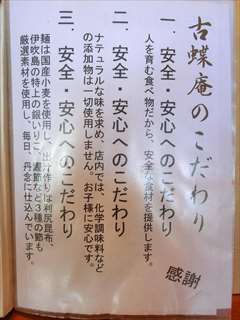 古蝶庵のこだわり
一、安全・安心へのこだわり
人を育む食べ物だから、安全な食材を提供します。
二、安全・安心へのこだわり
ナテュラルな味を求め、店内では、化学調味料など
の添加物は一切使用しません。お子様に安心です。
三、安全・安心へのこだわり
麺は国産小麦を使用し、出汁作りは利尻昆布、
伊吹島の特上の銀いりこ、鰹節など3種の節も
厳選素材を使用し、毎日、丹念に仕込んでいます。
感謝